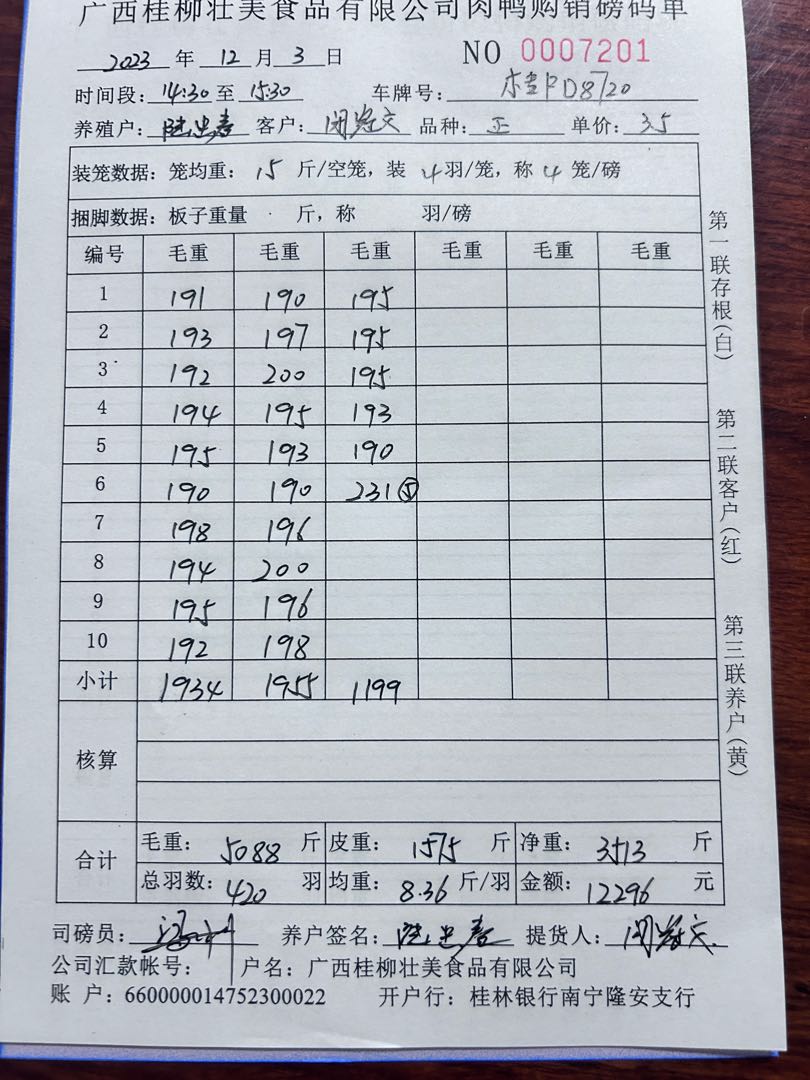 广西桂柳壮美食品有限公司肉鸭购销磅码单
2023 年 12 月 3 日 NO 0007201
时间段: 14:30 至 15:30 车牌号: 桂PD8720
养殖户: 客户: 品种: 正 单价: 3.5
装笼数据: 笼均重: 15 斤/空笼, 装 4 羽/笼, 称 4 笼/磅
捆脚数据: 板子重量 斤, 称 羽/磅
编号 毛重 毛重 毛重 毛重 毛重 毛重
1 191 190 195
2 193 197 195
3 192 200 195
4 194 195 193
5 195 193 190
6 190 190 231⑤
7 198 196
8 194 200
9 195 196
10 192 198
小计 1934 1955 1199
核算
合计
毛重: 5088 斤 皮重: 1575 斤 净重: 3513 斤
总羽数: 420 羽 均重: 8.36 斤/羽 金额: 12296 元
司磅员: 养户签名: 提货人:
公司汇款帐号: 户名: 广西桂柳壮美食品有限公司
账 户: 660000014752300022 开户行: 桂林银行南宁隆安支行
第一联存根(白)
第二联客户(红)
第三联养户(黄)